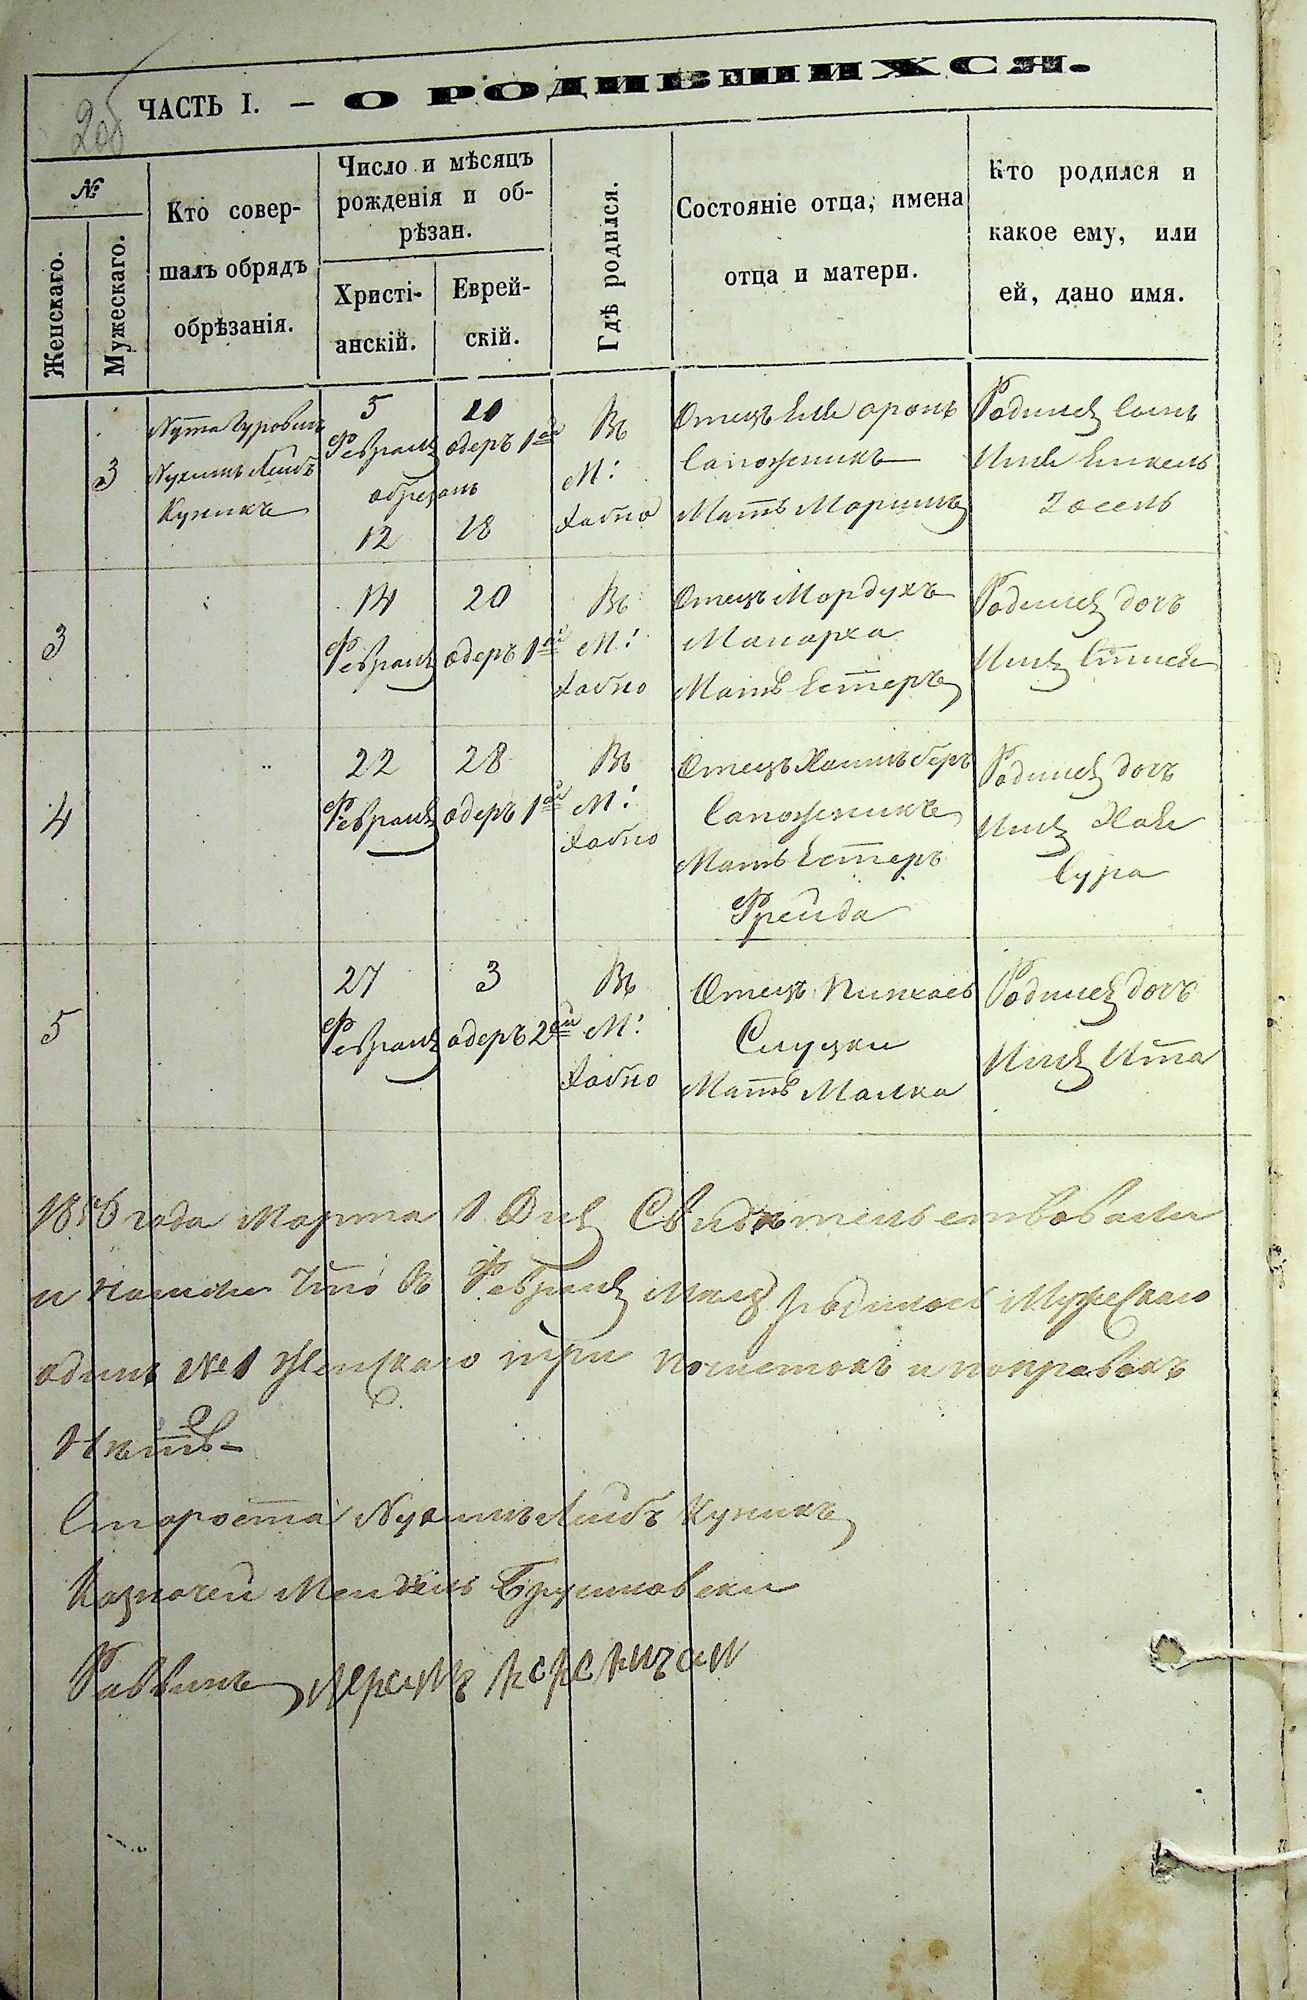 2об
ЧАСТЬ I. — О РОДИВШИХСЯ.
№
Женскаго.
Мужескаго.
Кто совер-
шалъ обрядъ
обрѣзанія.
Число и мѣсяцъ
рожденія и об-
рѣзан.
Христі-
анскій.
Еврей-
скій.
Гдѣ родился.
Состояніе отца, имена
отца и матери.
Кто родился и
какое ему, или
ей, дано имя.
3
Нута Гуровичъ
Нухимъ Лейбъ
Куникъ
5
Февраля
обрезанъ
12
10
адеръ 1й
18
Въ
М:
Хабно
Отецъ Ель Аронъ
Сапожникъ
Мать Марьимъ
Родился Сынъ
Имя Енкель
Іосель
3
14
Февраля
20
адеръ 1й
Въ
М:
Хабно
Отецъ Мордухъ
Макарха
Мать Естеръ
Родился дочъ
Имя
4
22
Февраля
28
адеръ 1й
Въ
М:
Хабно
Отецъ Хаимъ беръ
Сапожникъ
Мать Естеръ
Фрейда
Родился дочъ
Имя Хая
Сура
5
27
Февраля
3
адеръ 2й
Въ
М:
Хабно
Отецъ Пинхасъ
Слуцки
Мать Малка
Родился дочъ
Имя Ита
1856 года Марта 1 Дня Свидѣтельствовали
и нашли что въ Февраля родилось Мужескаго
одинъ №1 Женскаго три почистокъ и поправокъ
Нѣтъ
Староста Нухимъ Лейбъ Куникъ
Казначей Мендель Брусиловски
Раввинъ